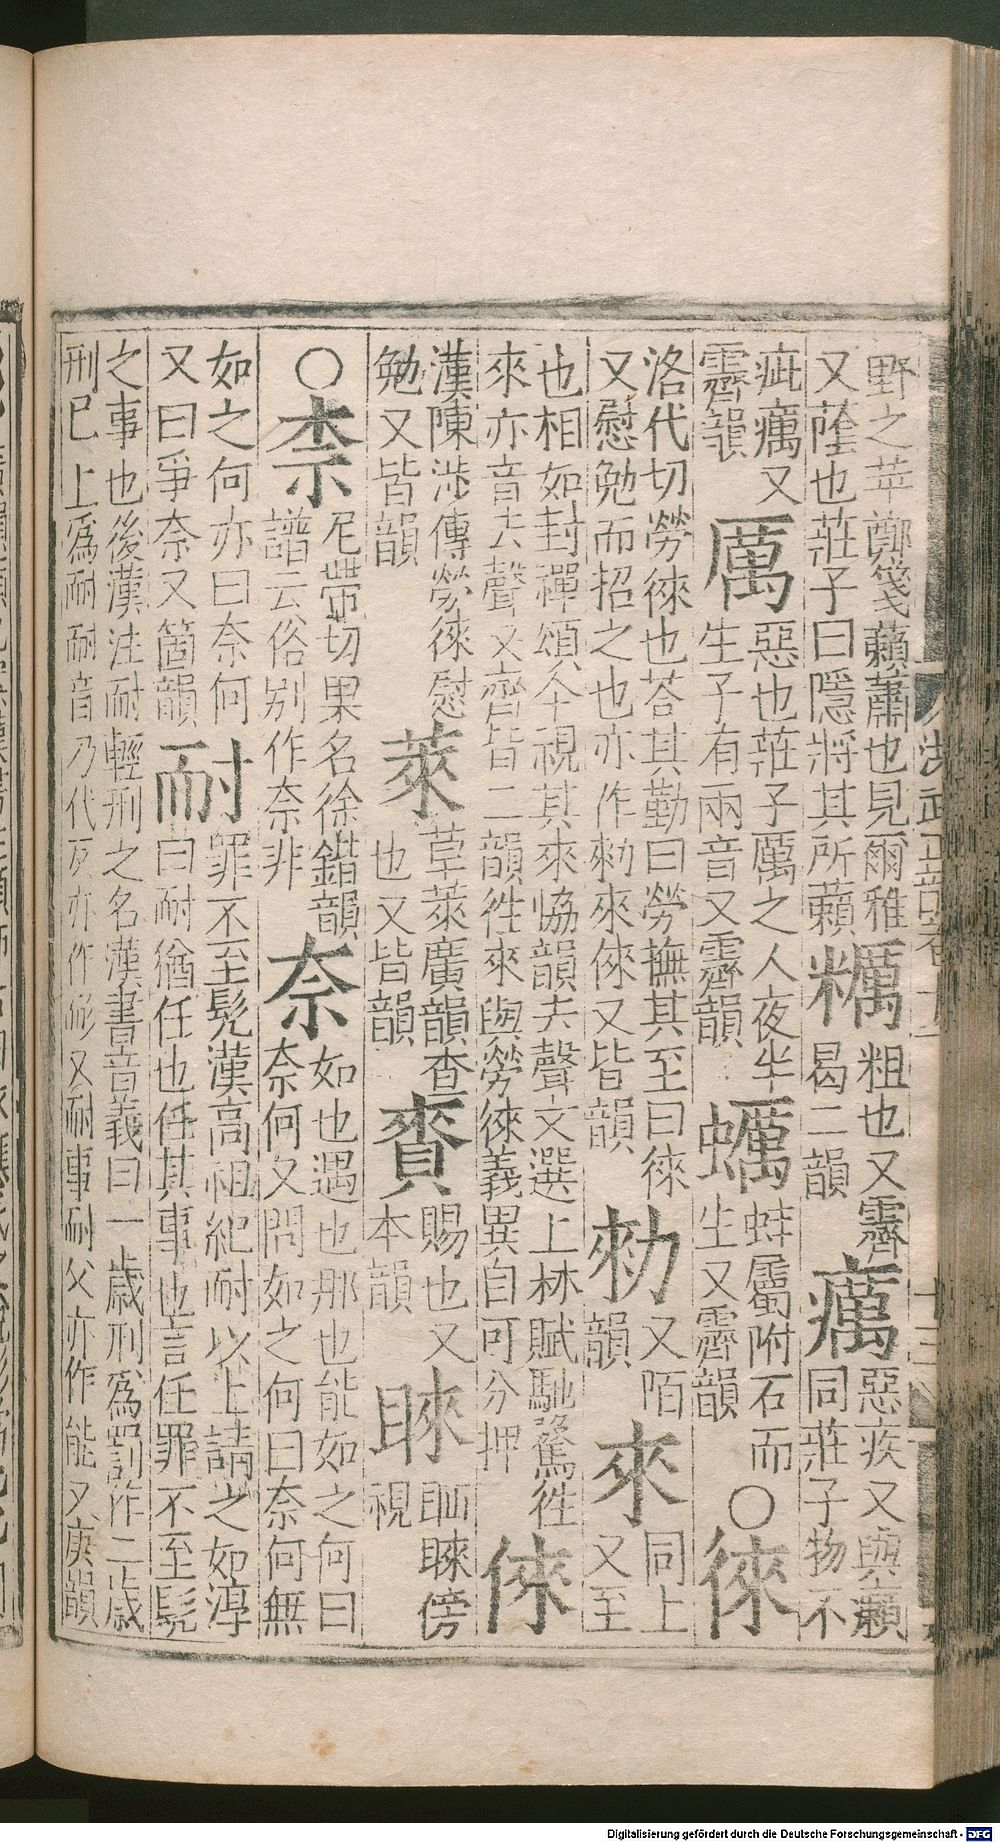 野之苹鄭箋藾蕭也見爾雅又蔭也莊子曰隱將其所藾糲粗也又霽曷二韻癘惡疾又與藾同莊子物不
疵癘又霽韻厲惡也莊子厲之人夜半生子有兩音又霽韻蠣蚌屬附石而生又霽韻〇徠
洛代切勞徠也荅其勤曰勞撫其至曰徠又慰勉而招之也亦作勑來倈又皆韻勑又陌韻來同上又至
也相如封禪頌今視其來恊韻去聲文選上林賦馳騖徃來亦音去聲又齊皆二韻徃來與勞徠義異自可分押倈
漢陳涉傳勞徠慰勉又皆韻萊草萊廣韻查也又皆韻賚賜也又本韻睞眄睞傍視
〇柰尼帶切果名徐鍇韻譜云俗别作奈非奈如也遇也那也能如之何曰奈何又問如之何曰奈何無
如之何亦曰奈何又曰爭奈又箇韻耐罪不至髡漢高祖紀耐以上請之如淳曰耐猶任也任其事也言任罪不至髡
之事也後漢注耐輕刑之名漢書音義曰一歲刑爲罰作二歲刑已上爲耐耐音乃代反亦作耏又耐事耐父亦作能又庚韻
Digitalisierung gefördert durch die Deutsche Forschungsgemeinschaft - DFG